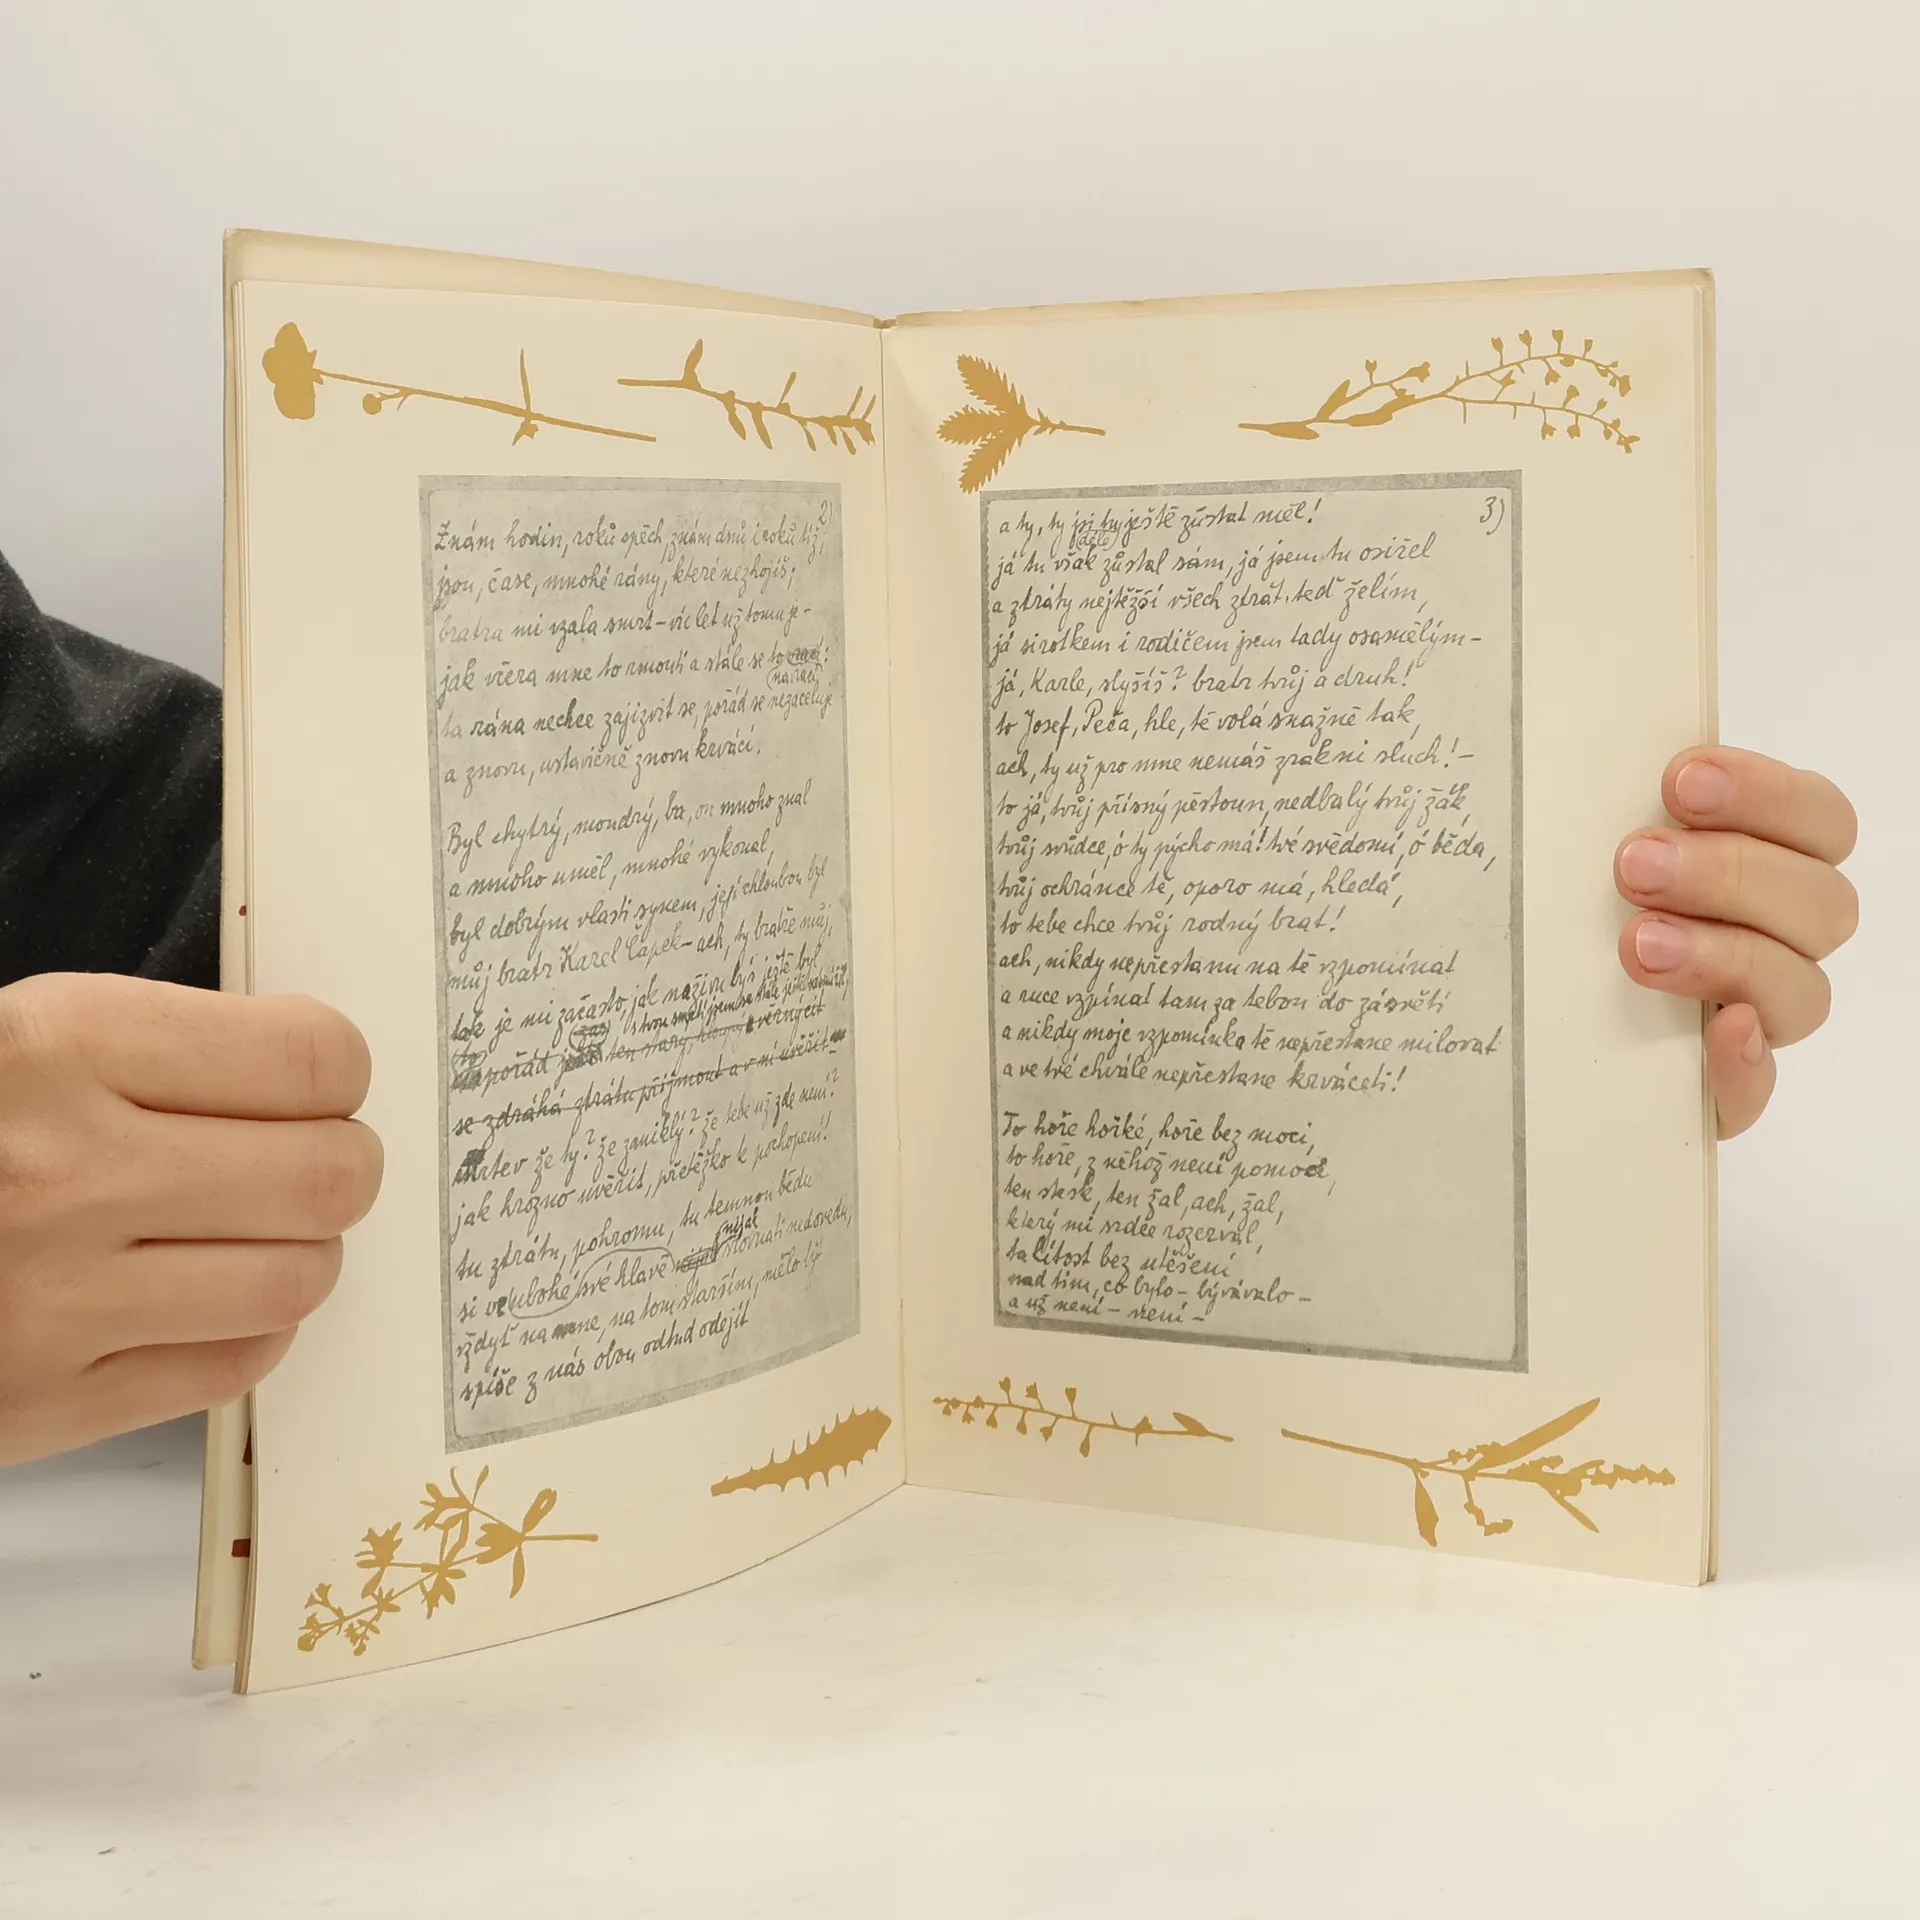 2)
Znám hodin, roků spěch, znám dnů i roků tíž,
jsou, čase, mnohé rány, které nezhojíš;
bratra mi vzala smrt – víc let už tomu je –
jak včera mne to rmoutí a stále se to
navrací:
ta rána nechce zajizvit se, pořád se nezaceluje
a znovu, ustavičně znovu krvácí.
Byl chytrý, moudrý, ba, on mnoho znal
a mnoho uměl, mnohé vykonal,
byl dobrým vlasti synem, její chloubou byl
můj bratr Karel Čapek – ach, ty bratře můj,
tak je mi začasto, jak naživu bys ještě byl
pořád ten starý,
se zdráhá ztrátu přijmout a v ni uvěřit –
Mrtev že ty? že zaniklý? že tebe už zde není?
jak hrozno uvěřit, přetěžko k pochopení!
tu ztrátu, pohromu, tu temnou bědu
si ve ubohé své hlavě nijak srovnati nedovedu,
vždyť na mne, na tom starším, mělo by
spíše z nás obou odtud odejít
3)
a ty, ty jsi tu ještě zůstat měl!
(déle)
já tu však zůstal sám, já jsem tu osiřel
a ztráty nejtěžší všech ztrát teď želím,
já sirotkem i rodičem jsem tady osamělým –
já, Karle, slyšíš? bratr tvůj a druh!
to Josef, Peča, hle, tě volá snažně tak,
ach, ty už pro mne nemáš zrak ni sluch! –
to já, tvůj přísný pěstoun, nedbalý tvůj žák,
tvůj svůdce, ó ty pýcho má! tvé svědomí, ó běda,
tvůj ochránce tě, oporo má, hledá,
to tebe chce tvůj rodný brat!
ach, nikdy nepřestanu na tě vzpomínat
a ruce vzpínat tam za tebou do zásvětí
a nikdy moje vzpomínka tě nepřestane milovat
a ve tvé chvále nepřestane krváceti!
To hoře hořké, hoře bez moci,
to hoře, z něhož není pomoci,
ten stesk, ten žal, ach, žal,
který mi srdce rozerval,
ta lítost bez utěšení
nad tím, co bylo – bývávalo –
a už není – není –